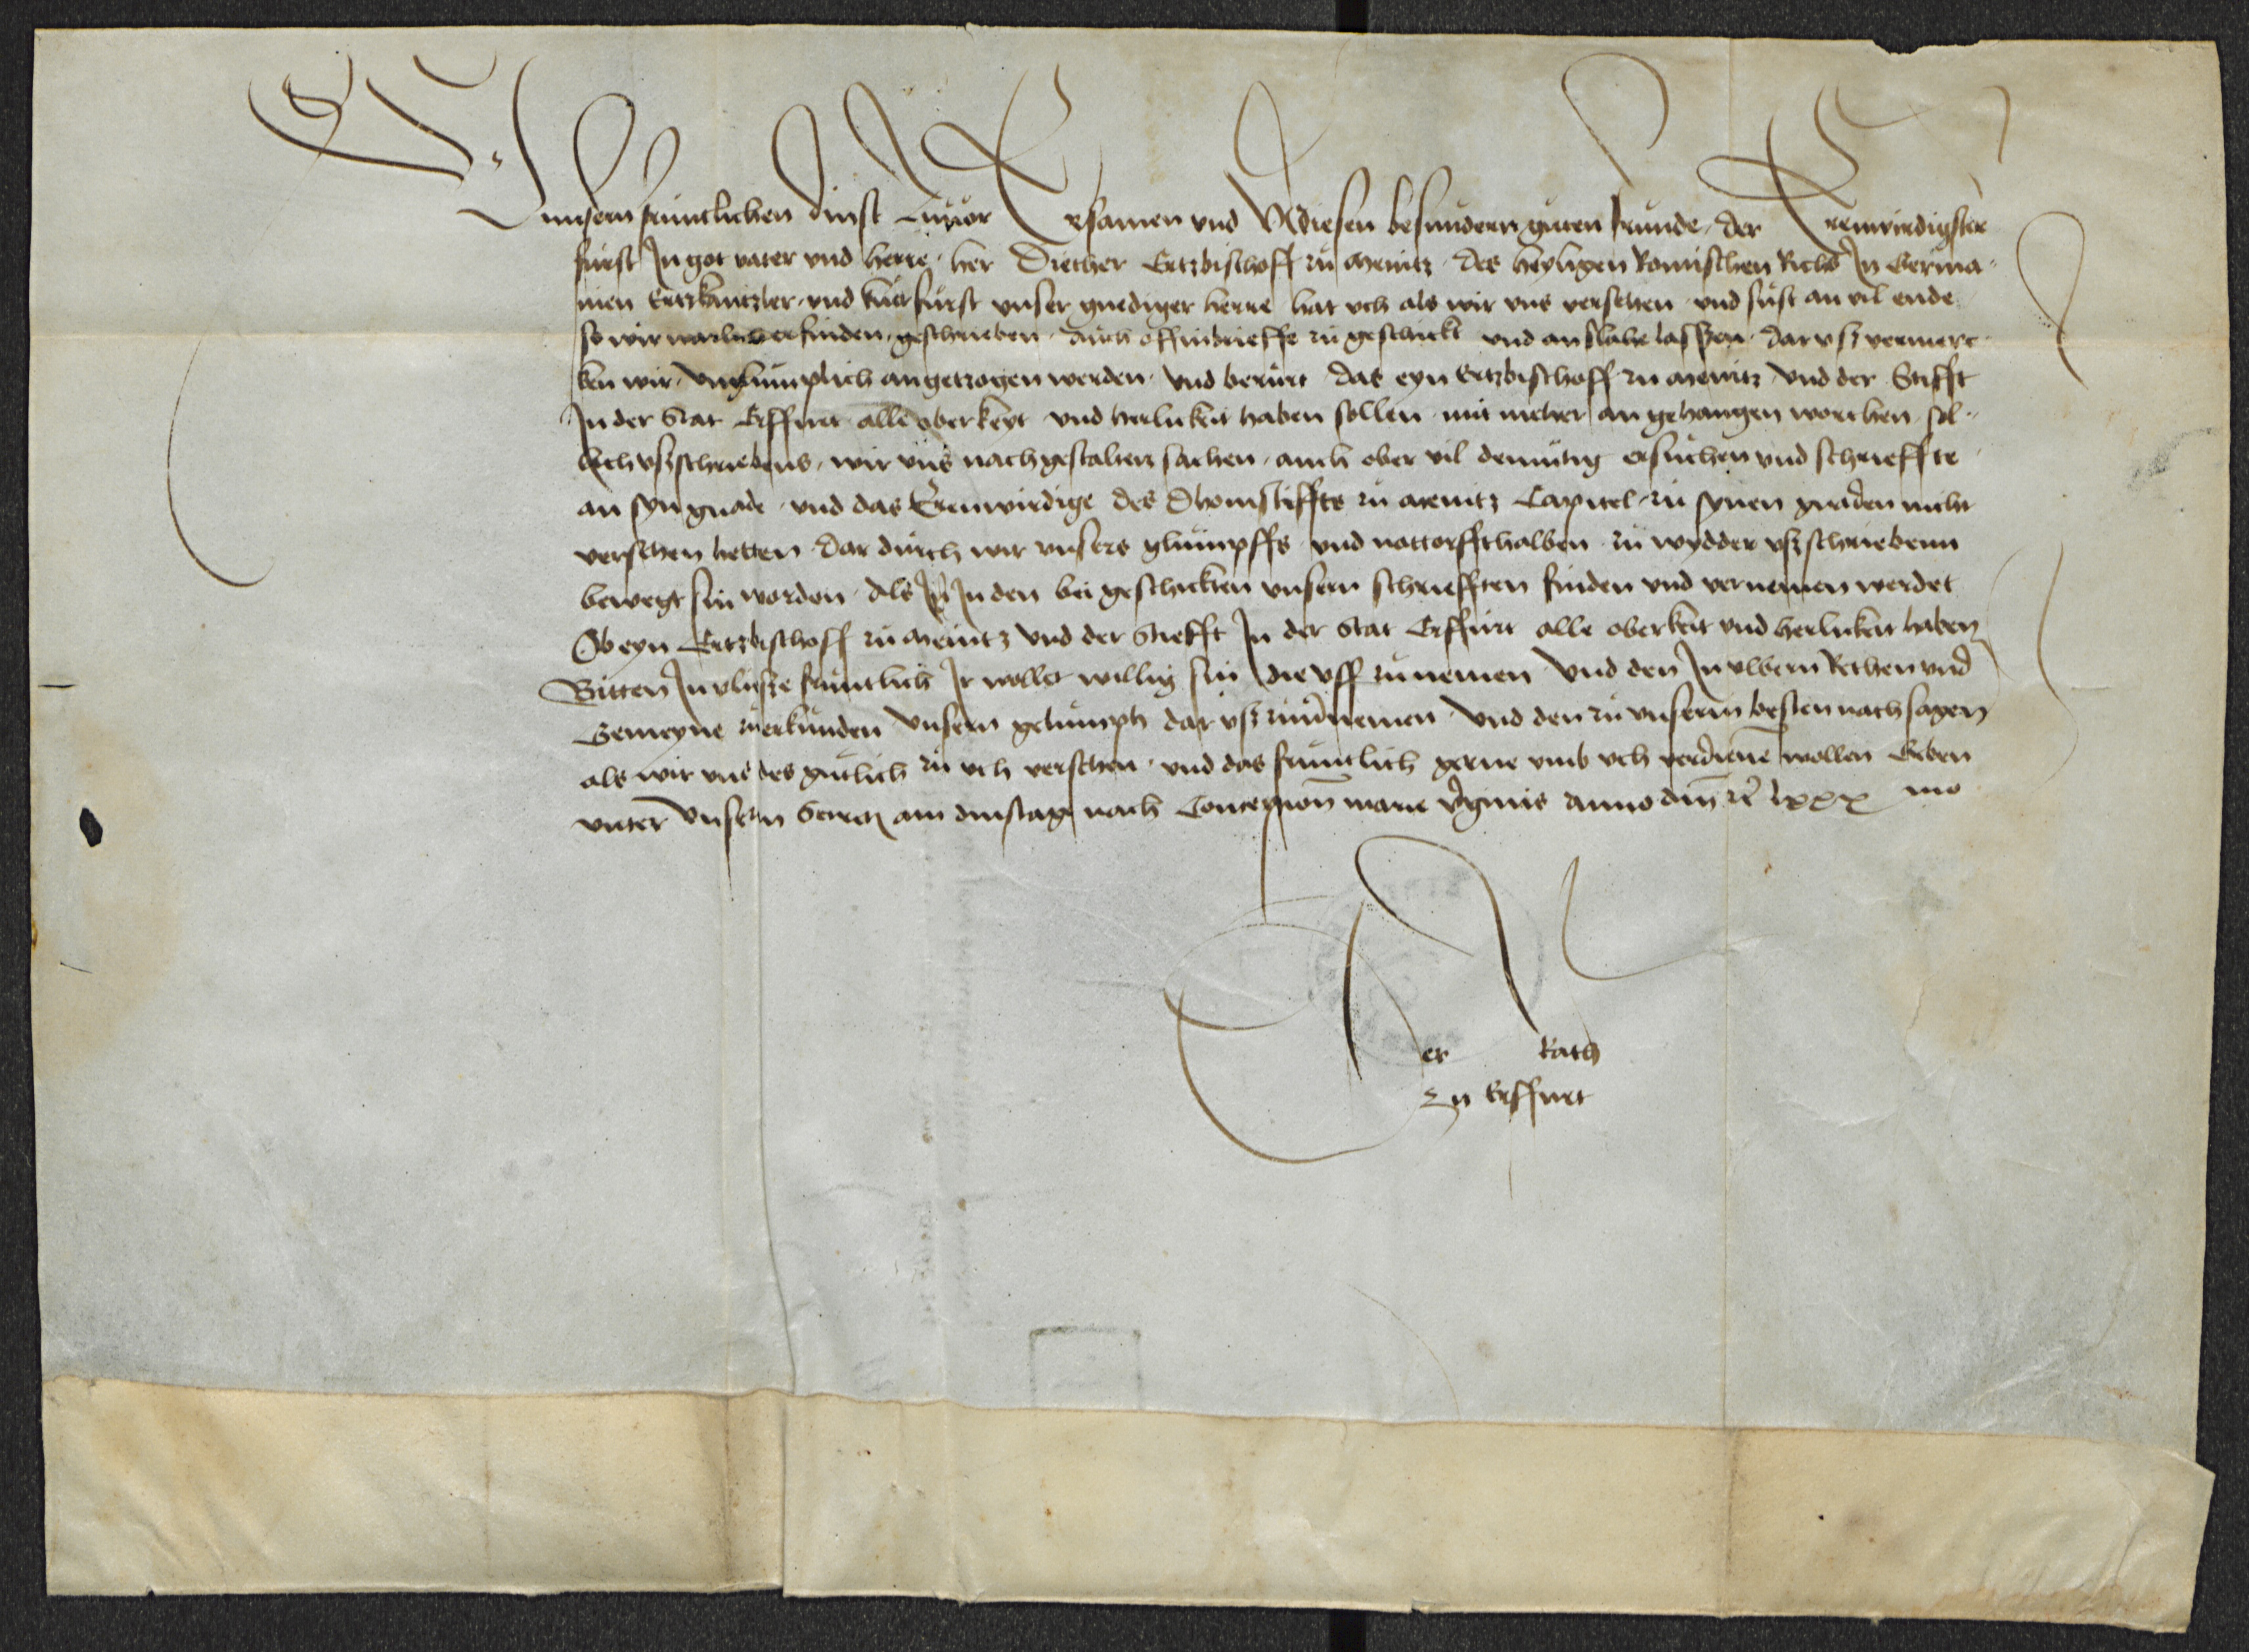 Unnsern fruntlichen dinst zuuor Ersamen vnd Wiesen besundern guten frunde, der Erenwirdigster
furst In got vater vnd herre, her Diether Ertzbischoff zu Meintz, des heyligen Romischen Richs In Germa-
nien Ertzkantzler, vnd kurfurst vnser gnediger herre hat uch als wir vns versehen vnd sust an vil ende
so wir warlich erfinden, geschrieben, auch offinbrieffe zu geschickt vnd anslahe lasßen, dar vß vermerc-
ken wir, vnglumplich angetzogen werden, vnd berurt das eyn Ertzbischoff zu Meintz vnd der Stifft
In der Stat Erffurt alle oberkeyt vnd herlikeit haben sollen, mit meher an gehangen worthen, sol-
lich vßschriebens, wir vns nach gestalten sachen, auch ober vil demutig ersuchen vnd schrieffte
an syn gnade, vnd das Erenwirdige des Dhomstiffts zu Meintz Capitel, zu synen gnaden nicht
versehen hetten, dar durch wir vnsers glumpffs vnd nottorffthalben zu wydder vßschriebenn
bewegt sin worden, als Ir In den bei geschickten vnsern schriefften finden vnd vernemen werdet
Ob eyn Ertzbischoff zu Meintz vnd der Stiefft In der Stat Erffurt alle oberkeit vnd herlikeit haben
Bitten In vlisße fruntlich Ir wollet willig sin die vff zu nemen vnd den In uwern Rethen vnd
Gemeyne zuerkunden vnsern gelumph dar vß zuuernemen vnd den zu vnserm besten nach sagen
als wir vns des gutlich zu uch versehen, vnd das fruntlich gerne vmb uch verdiene wollen Geben
vnter vnserm Secret am dinstag nach Concepcion marie v̉ginis Anno dm̄ rc̄ lxxx mo
Der Rath
zu Erffurt